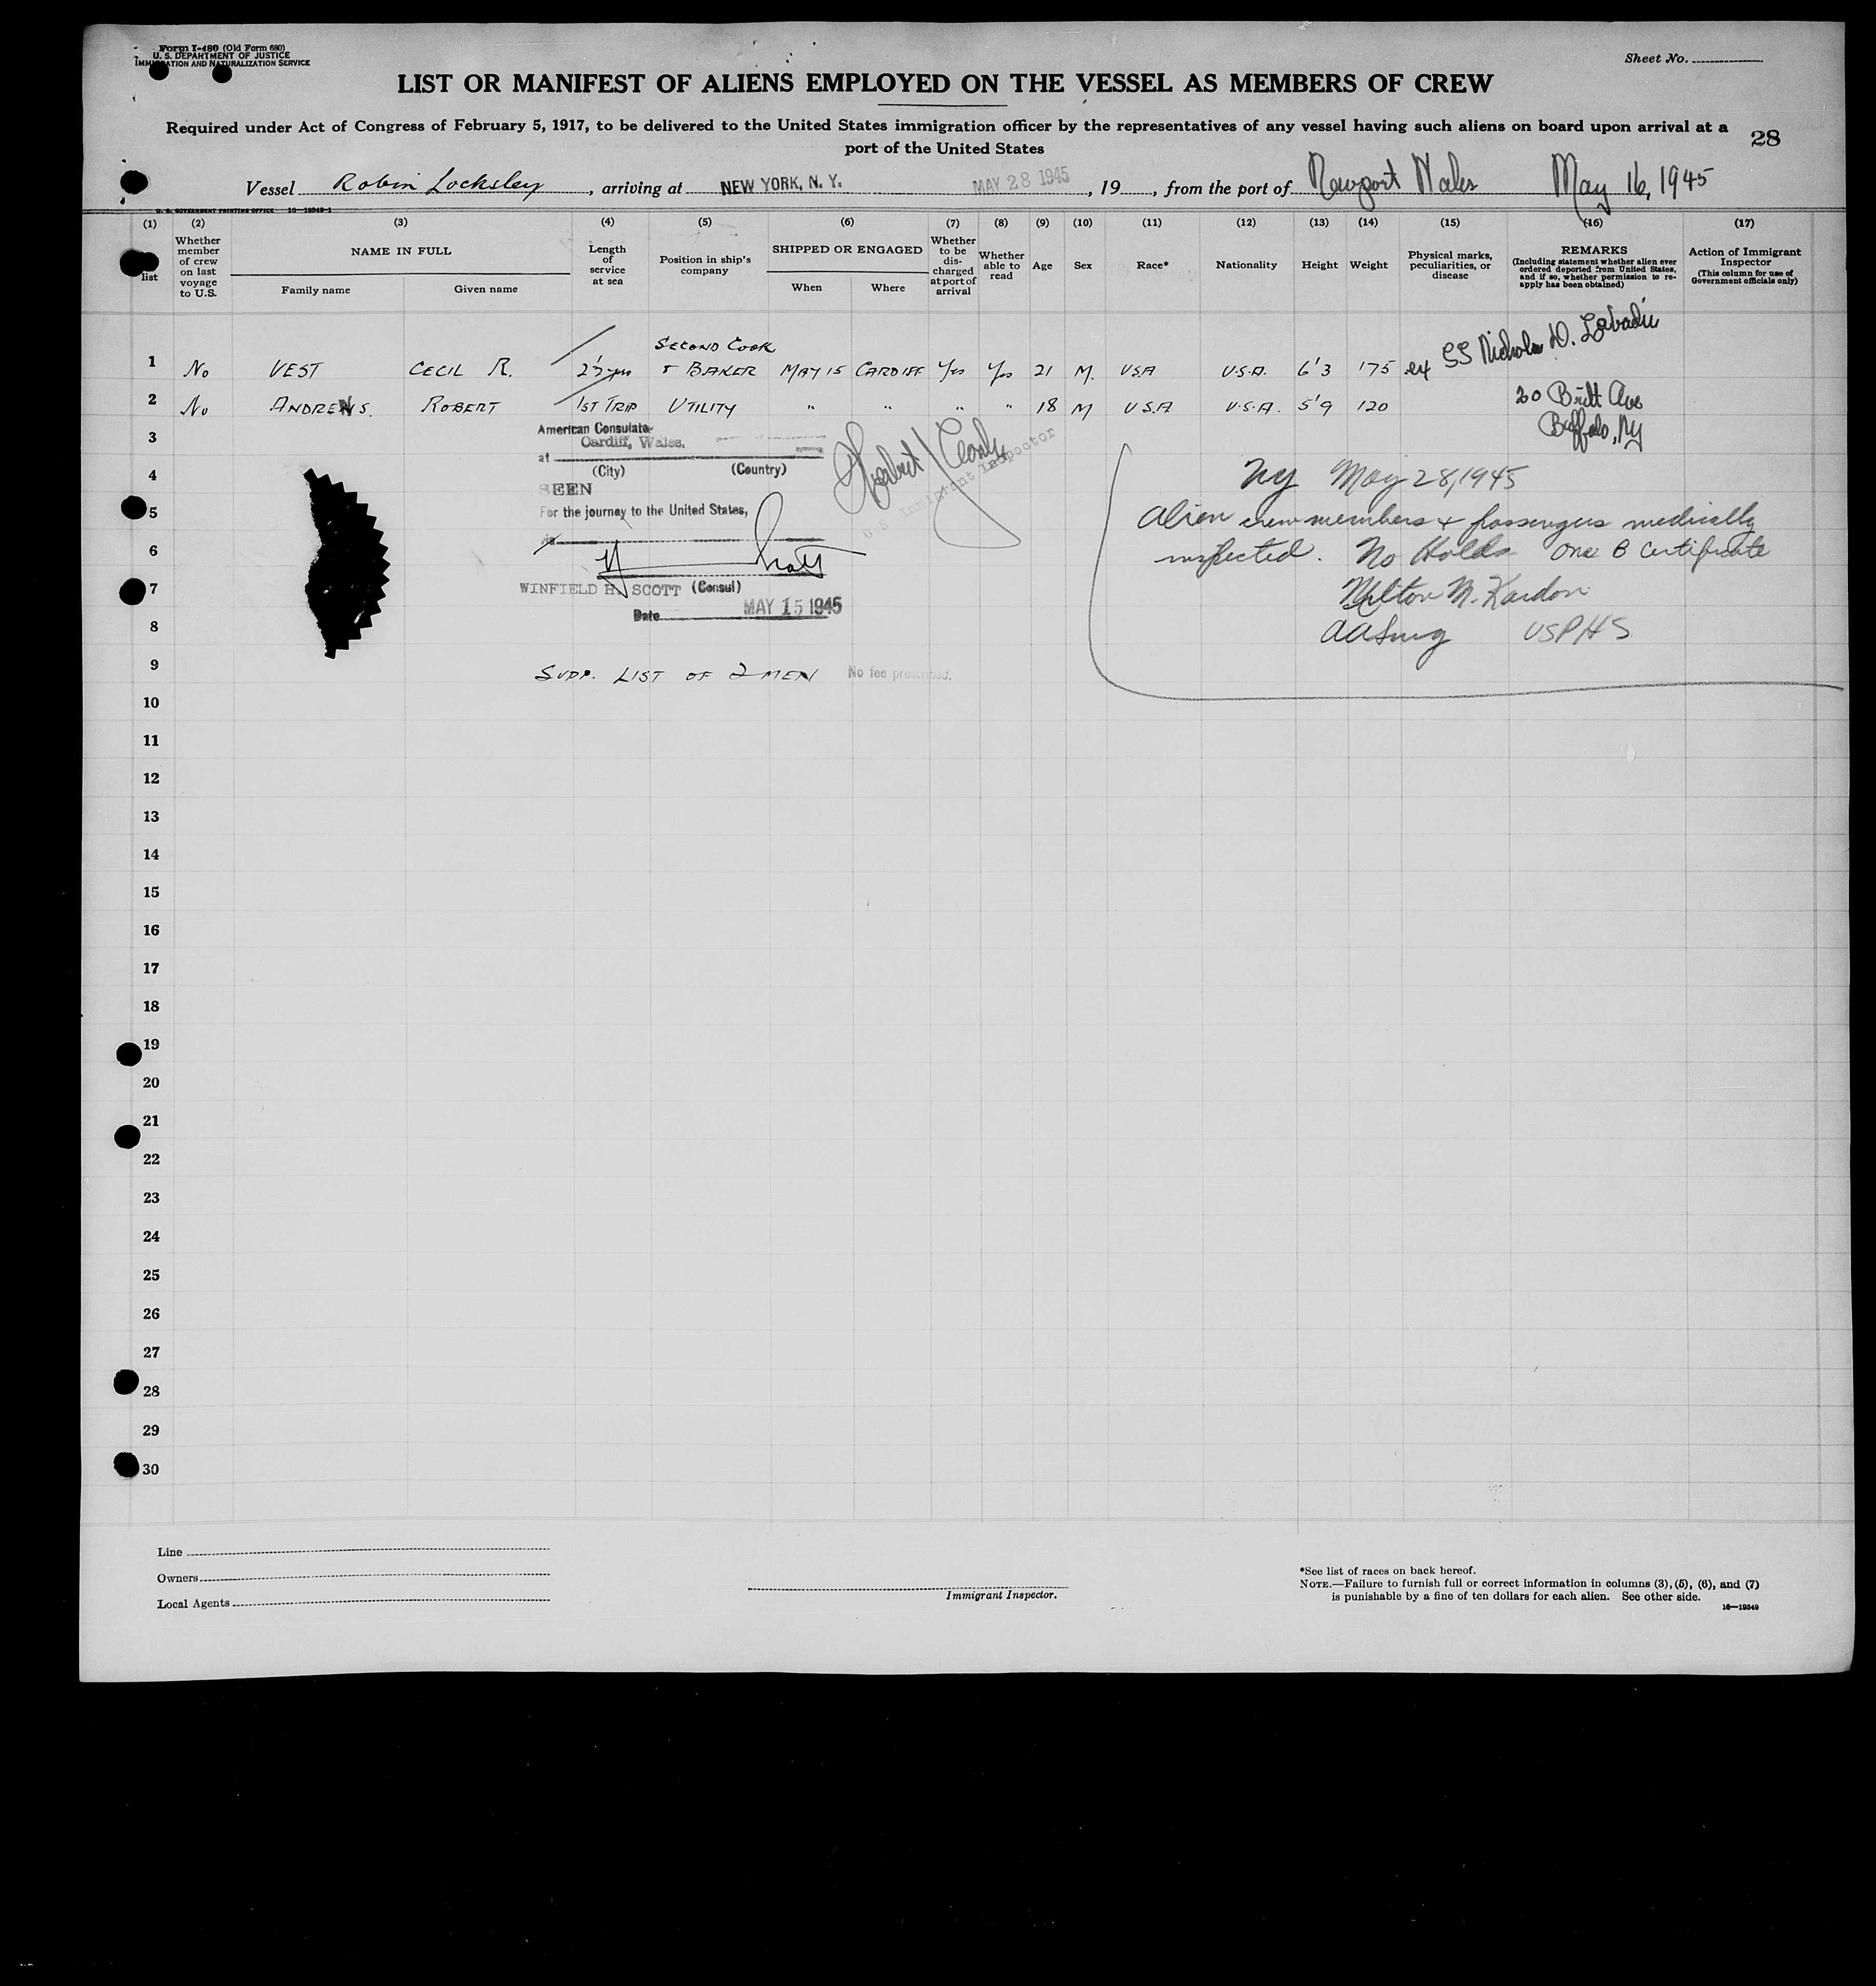 Form I-480 (Old Form 680)
U. S. DEPARTMENT OF JUSTICE
IMMIGRATION AND NATURALIZATION SERVICE
Sheet No.
LIST OR MANIFEST OF ALIENS EMPLOYED ON THE VESSEL AS MEMBERS OF CREW
Required under Act of Congress of February 5, 1917, to be delivered to the United States immigration officer by the representatives of any vessel having such aliens on board upon arrival at a
port of the United States
28
Vessel Robin Locksley, arriving at NEW YORK, N. Y. MAY 28 1945, 19, from the port of Newport Wales May 16, 1945
U. S. GOVERNMENT PRINTING OFFICE 16-19349-1
(1) (2) (3) (4) (5) (6) (7) (8) (9) (10) (11) (12) (13) (14) (15) (16) (17)
list
Whether member of crew on last voyage to U.S.
NAME IN FULL
Family name Given name
Length of service at sea
Position in ship's company
SHIPPED OR ENGAGED
When Where
Whether to be discharged at port of arrival
Whether able to read
Age
Sex
Race*
Nationality
Height
Weight
Physical marks, peculiarities, or disease
REMARKS
(Including statement whether alien ever ordered deported from United States, and if so, whether permission to reapply has been obtained)
Action of Immigrant Inspector
(This column for use of Government officials only)
1 No VEST CECIL R. SECOND COOK & BAKER MAY 15 CARDIFF Yes Yes 21 M. USA U.S.A. 6'3 175 ex SS Nicholas D. Labadie
2 No ANDREWS. ROBERT 1ST TRIP UTILITY " " " " 18 M USA U.S.A. 5'9 120 20 Britt Ave
Buffalo, NY
3
4
5
6
7
8
9
American Consulate
Cardiff, Wales.
at
(City) (Country)
SEEN
For the journey to the United States,
WINFIELD H. SCOTT (Consul)
Date MAY 15 1945
U.S. Immigrant Inspector
NY May 28, 1945
Alien crew members & passengers medically
inspected. No Holds One B Certificate
Milton M. Kardon
AASurg USPHS
SUPP. LIST OF 2 MEN No fee prescribed.
10
11
12
13
14
15
16
17
18
19
20
21
22
23
24
25
26
27
28
29
30
Line
Owners
Local Agents
Immigrant Inspector.
*See list of races on back hereof.
NOTE.—Failure to furnish full or correct information in columns (3), (5), (6), and (7)
is punishable by a fine of ten dollars for each alien. See other side.
16—19349